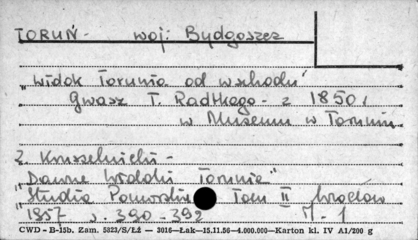 TORUŃ - woj: Bydgoszcz
„Widok Torunia od wschodu”
Gwasz T. Radtkego - z 1850 r
w Muzeum w Toruniu
Z. Kruszelnicki -
Dawne widoki Torunia"
"Studia Pomorskie Tom II Wrocław
1957 s. 390-392 Il. 1
CWD - B-15b. Zam. 5823/S/Łź — 3016—Łak—15.11.56—4.000.000—Karton kl. IV A1/200 g